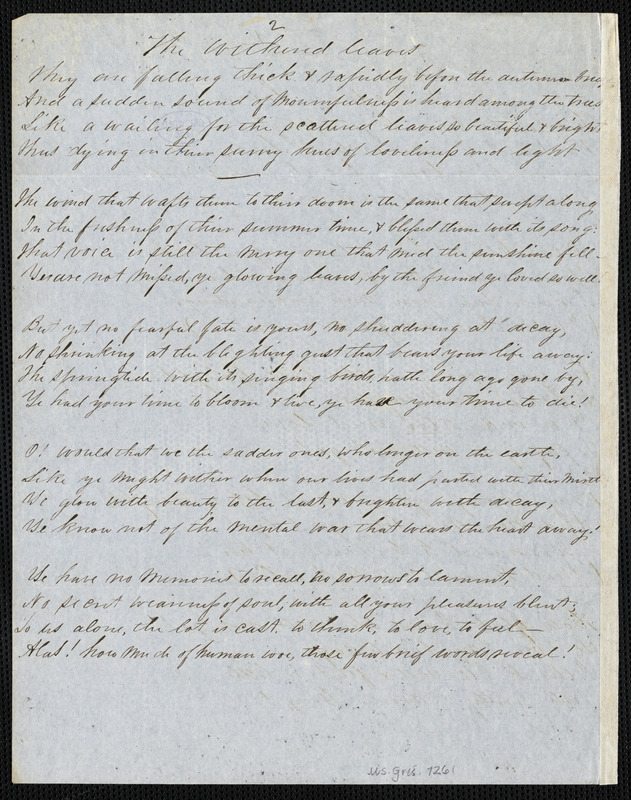 2
The withered leaves
They are falling thick & rapidly before the autumn breeze
And a sudden sound of mournfulness is heard among the trees
Like a wailing for the scattered leaves so beautiful & bright
Thus dying in their sunny hues of loveliness and light
The wind that wafts them to their doom is the same that swept along
In the freshness of their summer time, & blessed them with its song:
That voice is still the merry one that mid the sunshine fell—
Ye are not missed, ye glowing leaves, by the friend ye loved so well.
But yet no fearful fate is yours, no shuddering at decay,
No shrinking at the blighting gust that bears your life away:
The springtide with its singing birds, hath long ago gone by,
Ye had your time to bloom & live, ye have your time to die!
O! would that we the sadder ones, who linger on the earth,
Like ye might wither when our lives had parted with their mirth
Ye glow with beauty to the last, & brighten with decay,
Ye know not of the mental war that wears the heart away!
Ye have no memories to recall, no sorrows to lament,
No secret weariness of soul, with all your pleasures blent;
To us alone, the lot is cast. to think, to love, to feel—
Alas! how much of human woe, those few brief words reveal!
Ms. Gris. 1261